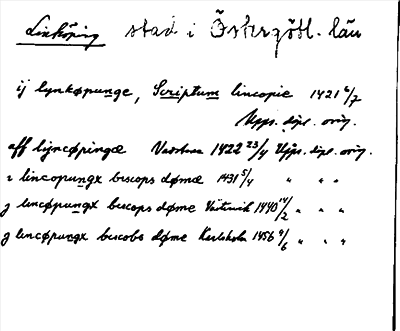 Linköping stad i Östergötl. län
ij lynkøpunge, Scriptum lincopie 1421 6/7
Upps. dipl. orig.
aff lijncøpingæ Vasstena 1422 23/4 Upps. dipl. orig.
i lincopungx biscops dømæ 1431 5/4 " " "
j lincøpungx biscops døme Västervik 1440 14/2 " " "
j lincøpungx biscobs døme Karlsholm 1456 9/6 " " "